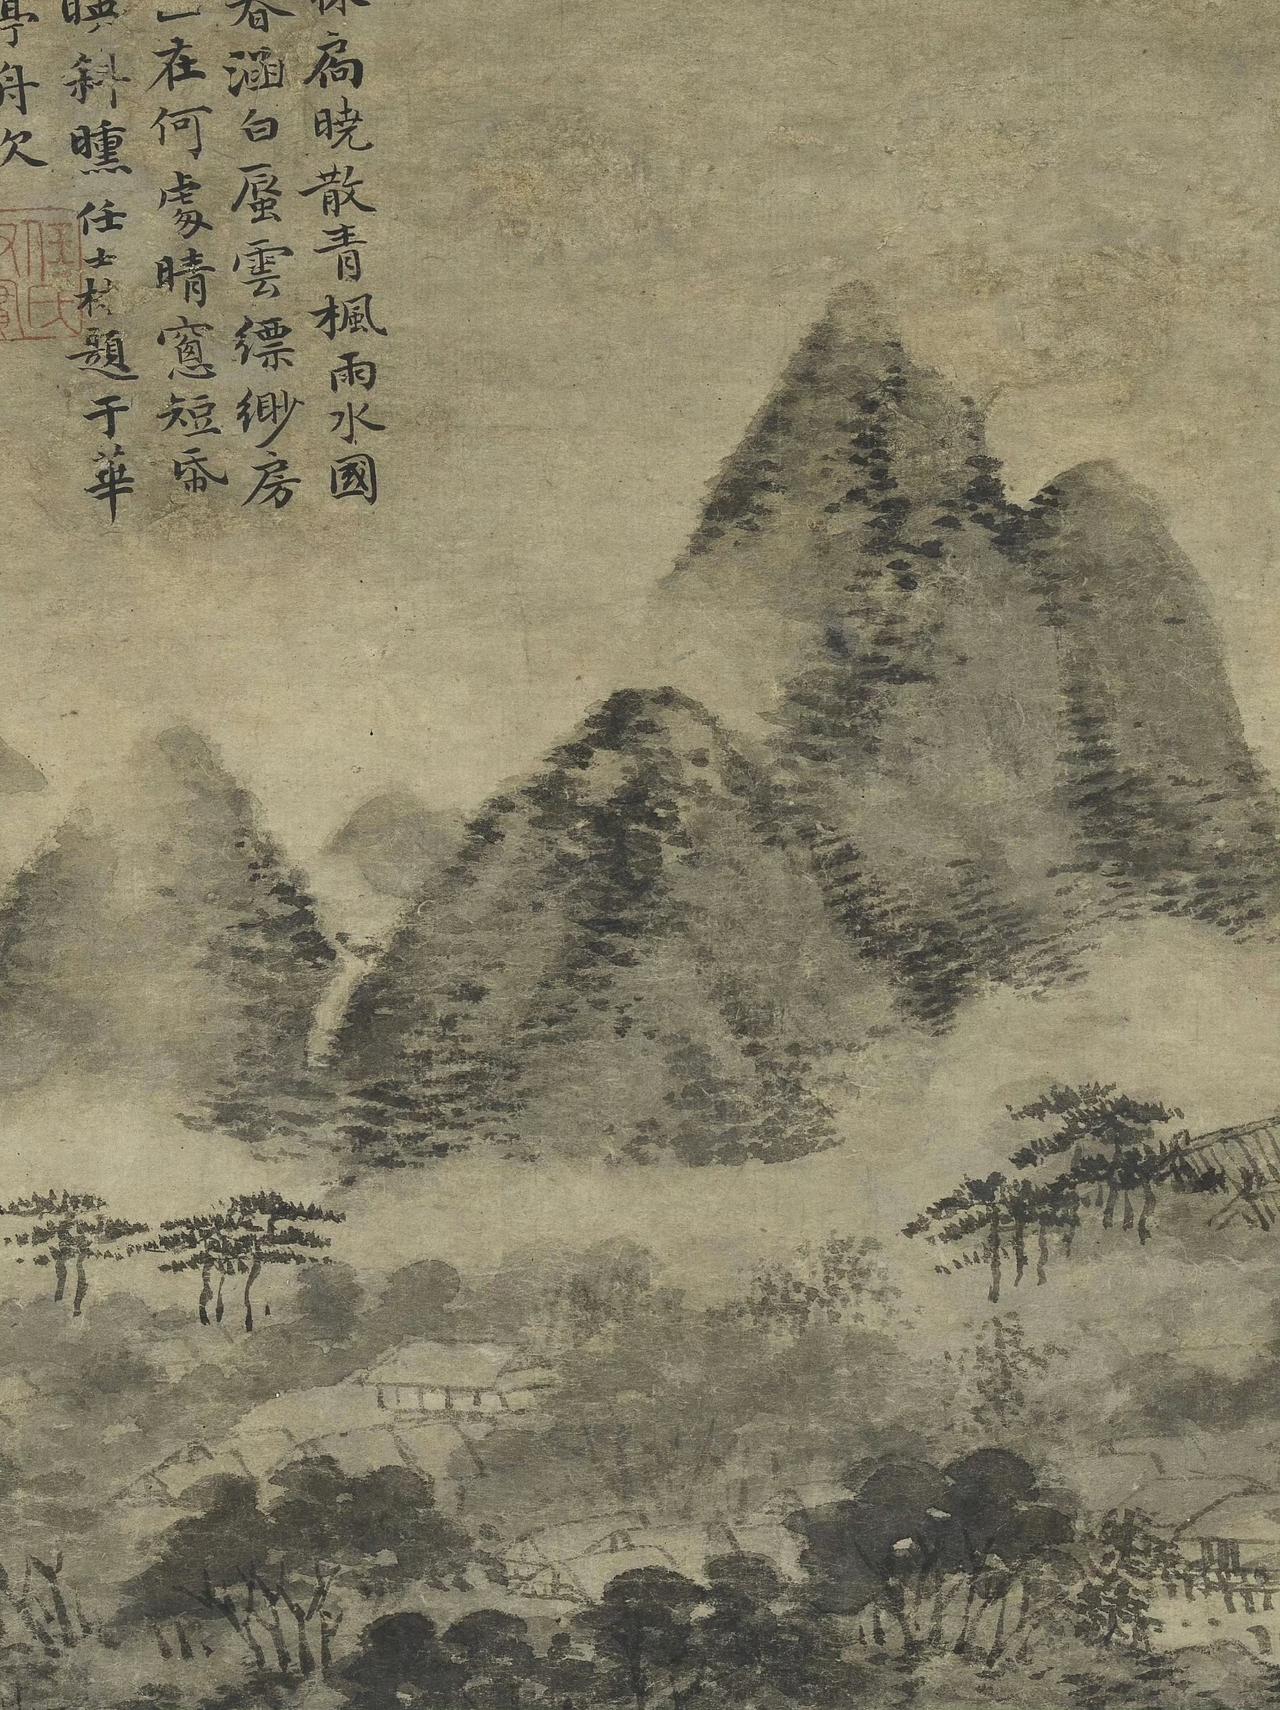 扃曉散青楓雨水國
春涵白蜃雲縹緲房
在何處晴窗短
斜曛任士林題于華
亭舟次
任氏